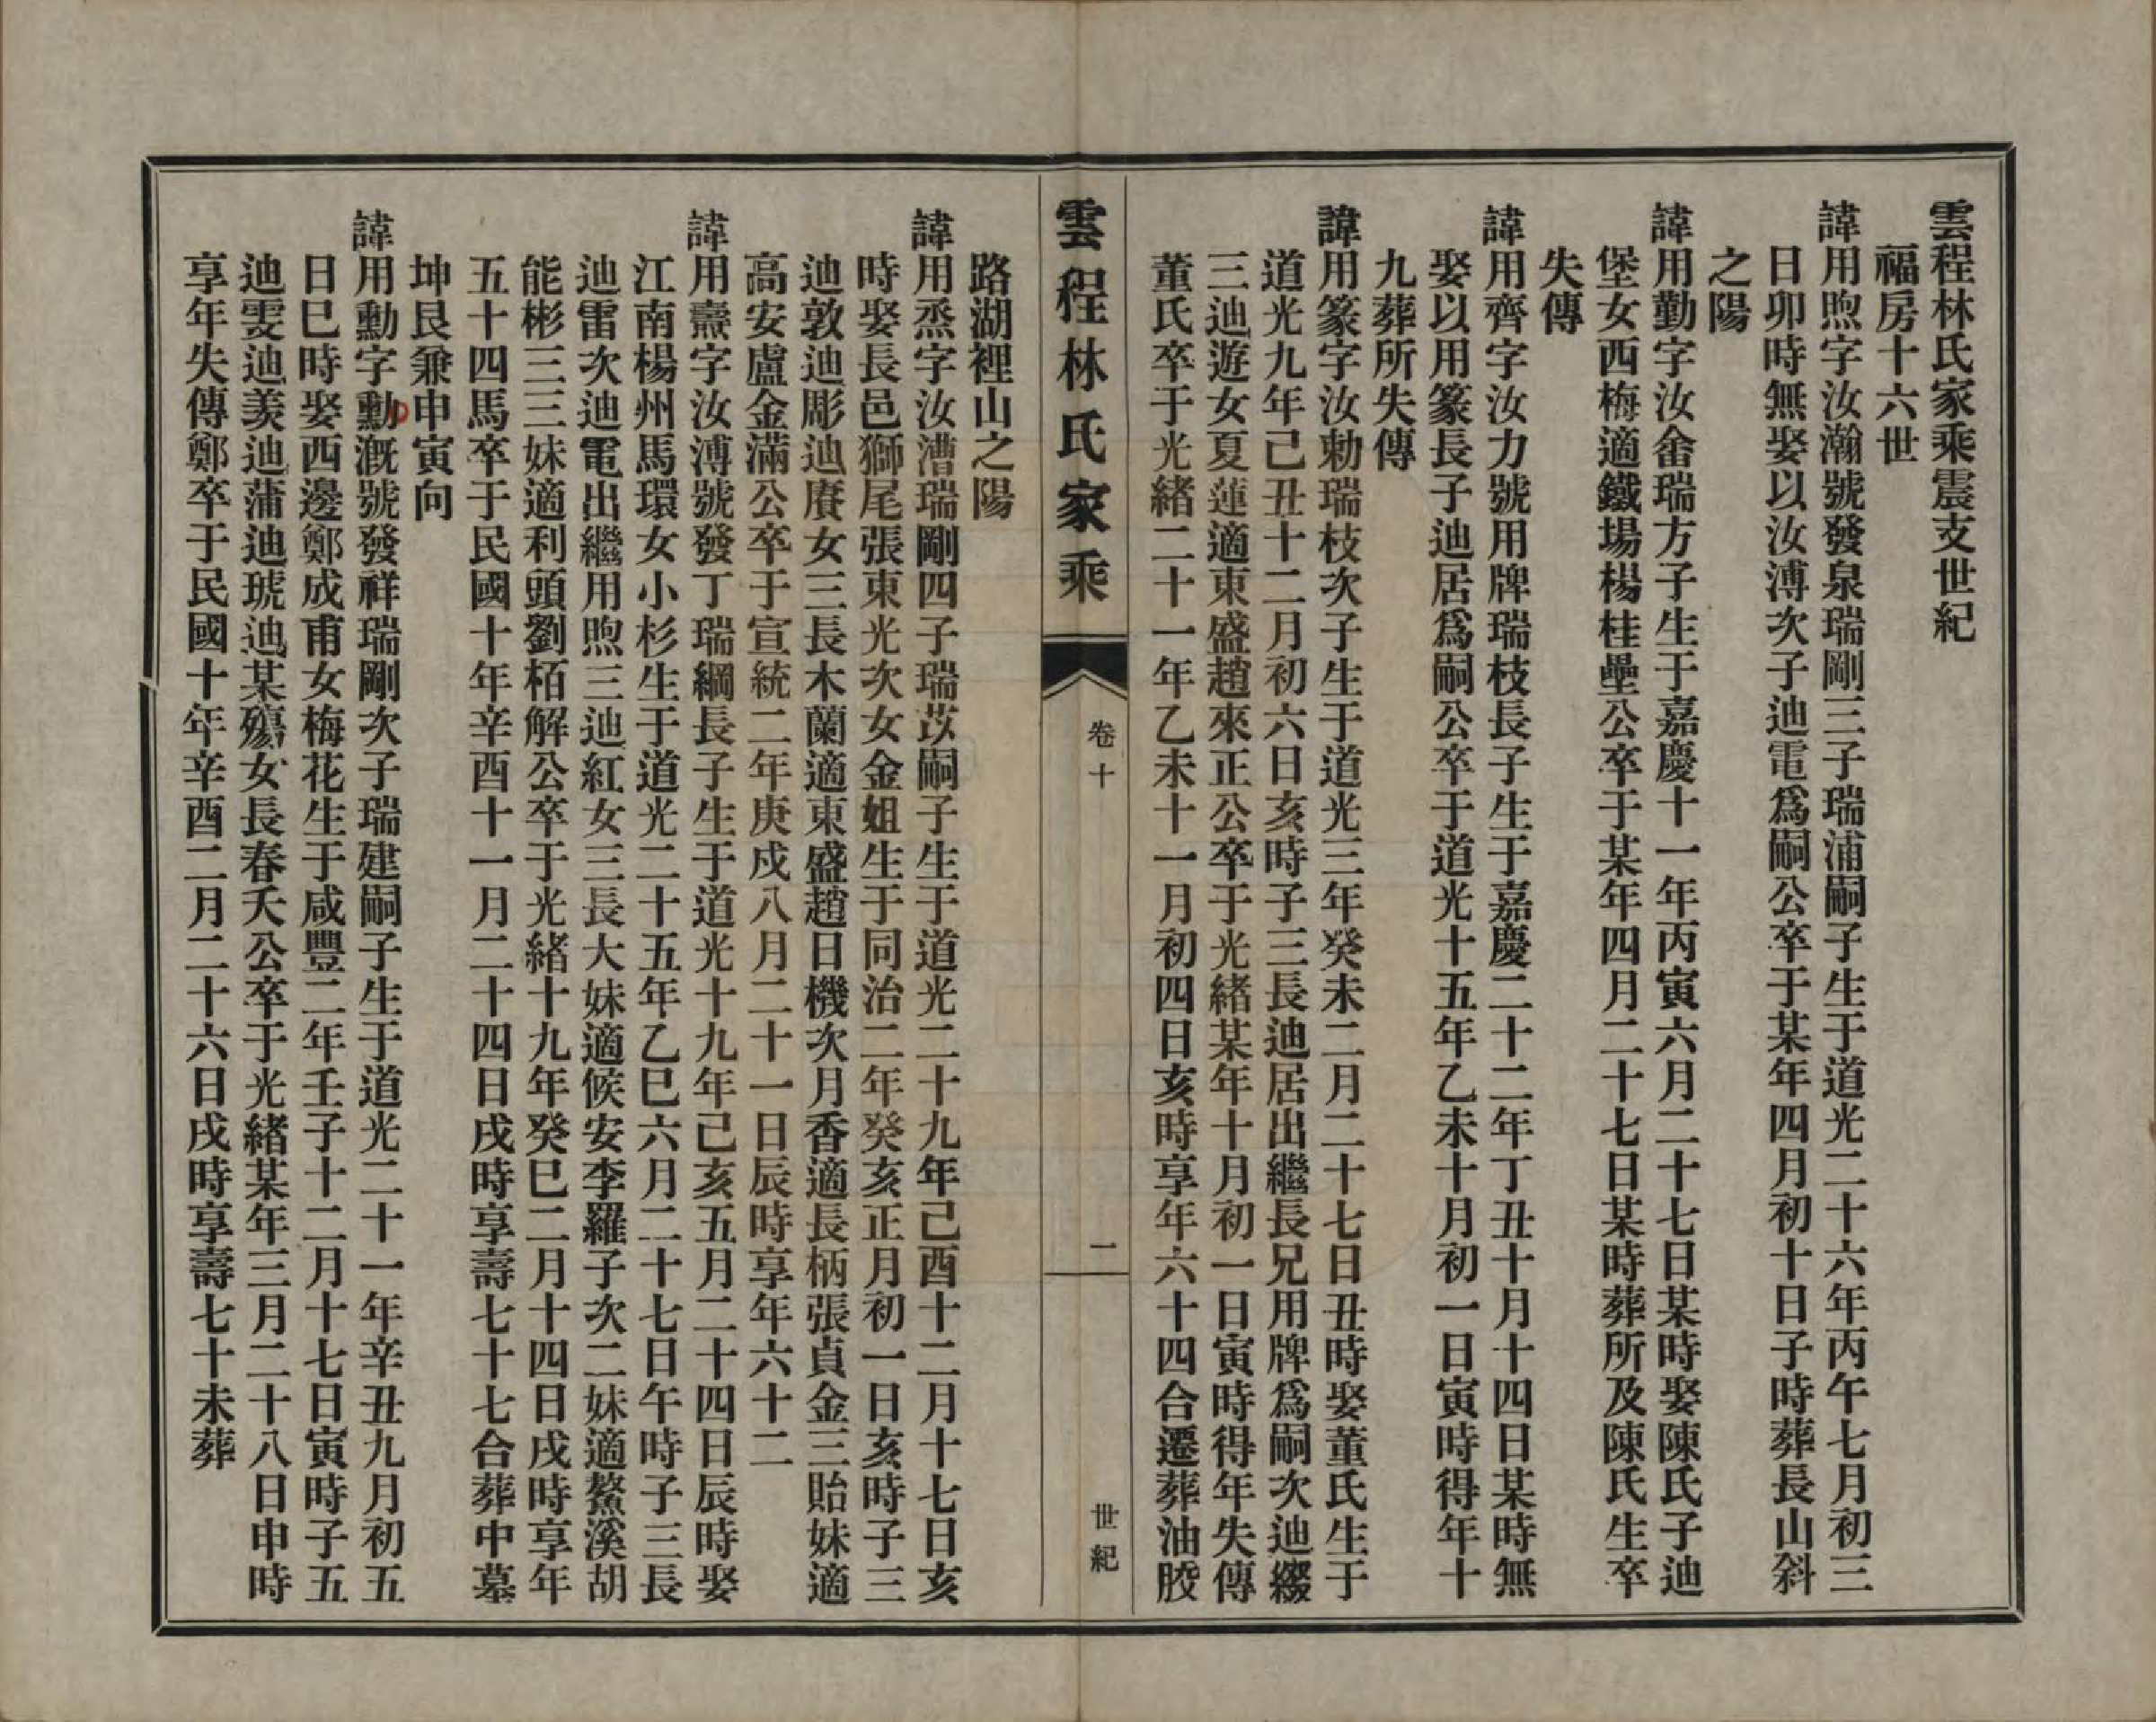 雲程林氏家乘震支世紀
福房十六世
諱用煦字汝瀚號發泉瑞剛三子瑞浦嗣子生于道光二十六年丙午七月初三
日卯時無娶以汝溥次子迪電爲嗣公卒于某年四月初十日子時葬長山斜
之陽
諱用勤字汝畬瑞方子生于嘉慶十一年丙寅六月二十七日某時娶陳氏子迪
堡女西梅適鐵場楊桂壘公卒于某年四月二十七日某時葬所及陳氏生卒
失傳
諱用齊字汝力號用牌瑞枝長子生于嘉慶二十二年丁丑十月十四日某時無
娶以用篆長子迪居爲嗣公卒于道光十五年乙未十月初一日寅時得年十
九葬所失傳
諱用篆字汝勅瑞枝次子生于道光三年癸未二月二十七日丑時娶董氏生于
道光九年己丑十二月初六日亥時子三長迪居出繼長兄用牌爲嗣次迪綴
三迪遊女夏蓮適東盛趙來正公卒于光緒某年十月初一日寅時得年失傳
董氏卒于光緒二十一年乙未十一月初四日亥時享年六十四合遷葬油胶
雲程林氏家乘
卷十
二
世紀
路湖裡山之陽
諱用烝字汝漕瑞剛四子瑞苡嗣子生于道光二十九年己酉十二月十七日亥
時娶長邑獅尾張東光次女金姐生于同治二年癸亥正月初一日亥時子三
迪敦迪彫迪賡女三長木蘭適東盛趙日機次月香適長柄張貞金三貽妹適
高安盧金滿公卒于宣統二年庚戌八月二十一日辰時享年六十二
諱用燾字汝溥號發丁瑞綱長子生于道光十九年己亥五月二十四日辰時娶
江南楊州馬環女小杉生于道光二十五年乙巳六月二十七日午時子三長
迪雷次迪電出繼用煦三迪紅女三長大妹適候安李羅子次二妹適鰲溪胡
能彬三三妹適利頭劉栢解公卒于光緒十九年癸巳二月十四日戌時享年
五十四馬卒于民國十年辛酉十一月二十四日戌時享壽七十七合葬中墓
坤艮兼申寅向
諱用勳字勳溉號發祥瑞剛次子瑞建嗣子生于道光二十一年辛丑九月初五
日巳時娶西邊鄭成甫女梅花生于咸豐二年壬子十二月十七日寅時子五
迪雯迪羨迪蒲迪琥迪某殤女長春夭公卒于光緒某年三月二十八日申時
享年失傳鄭卒于民國十年辛酉二月二十六日戌時享壽七十未葬